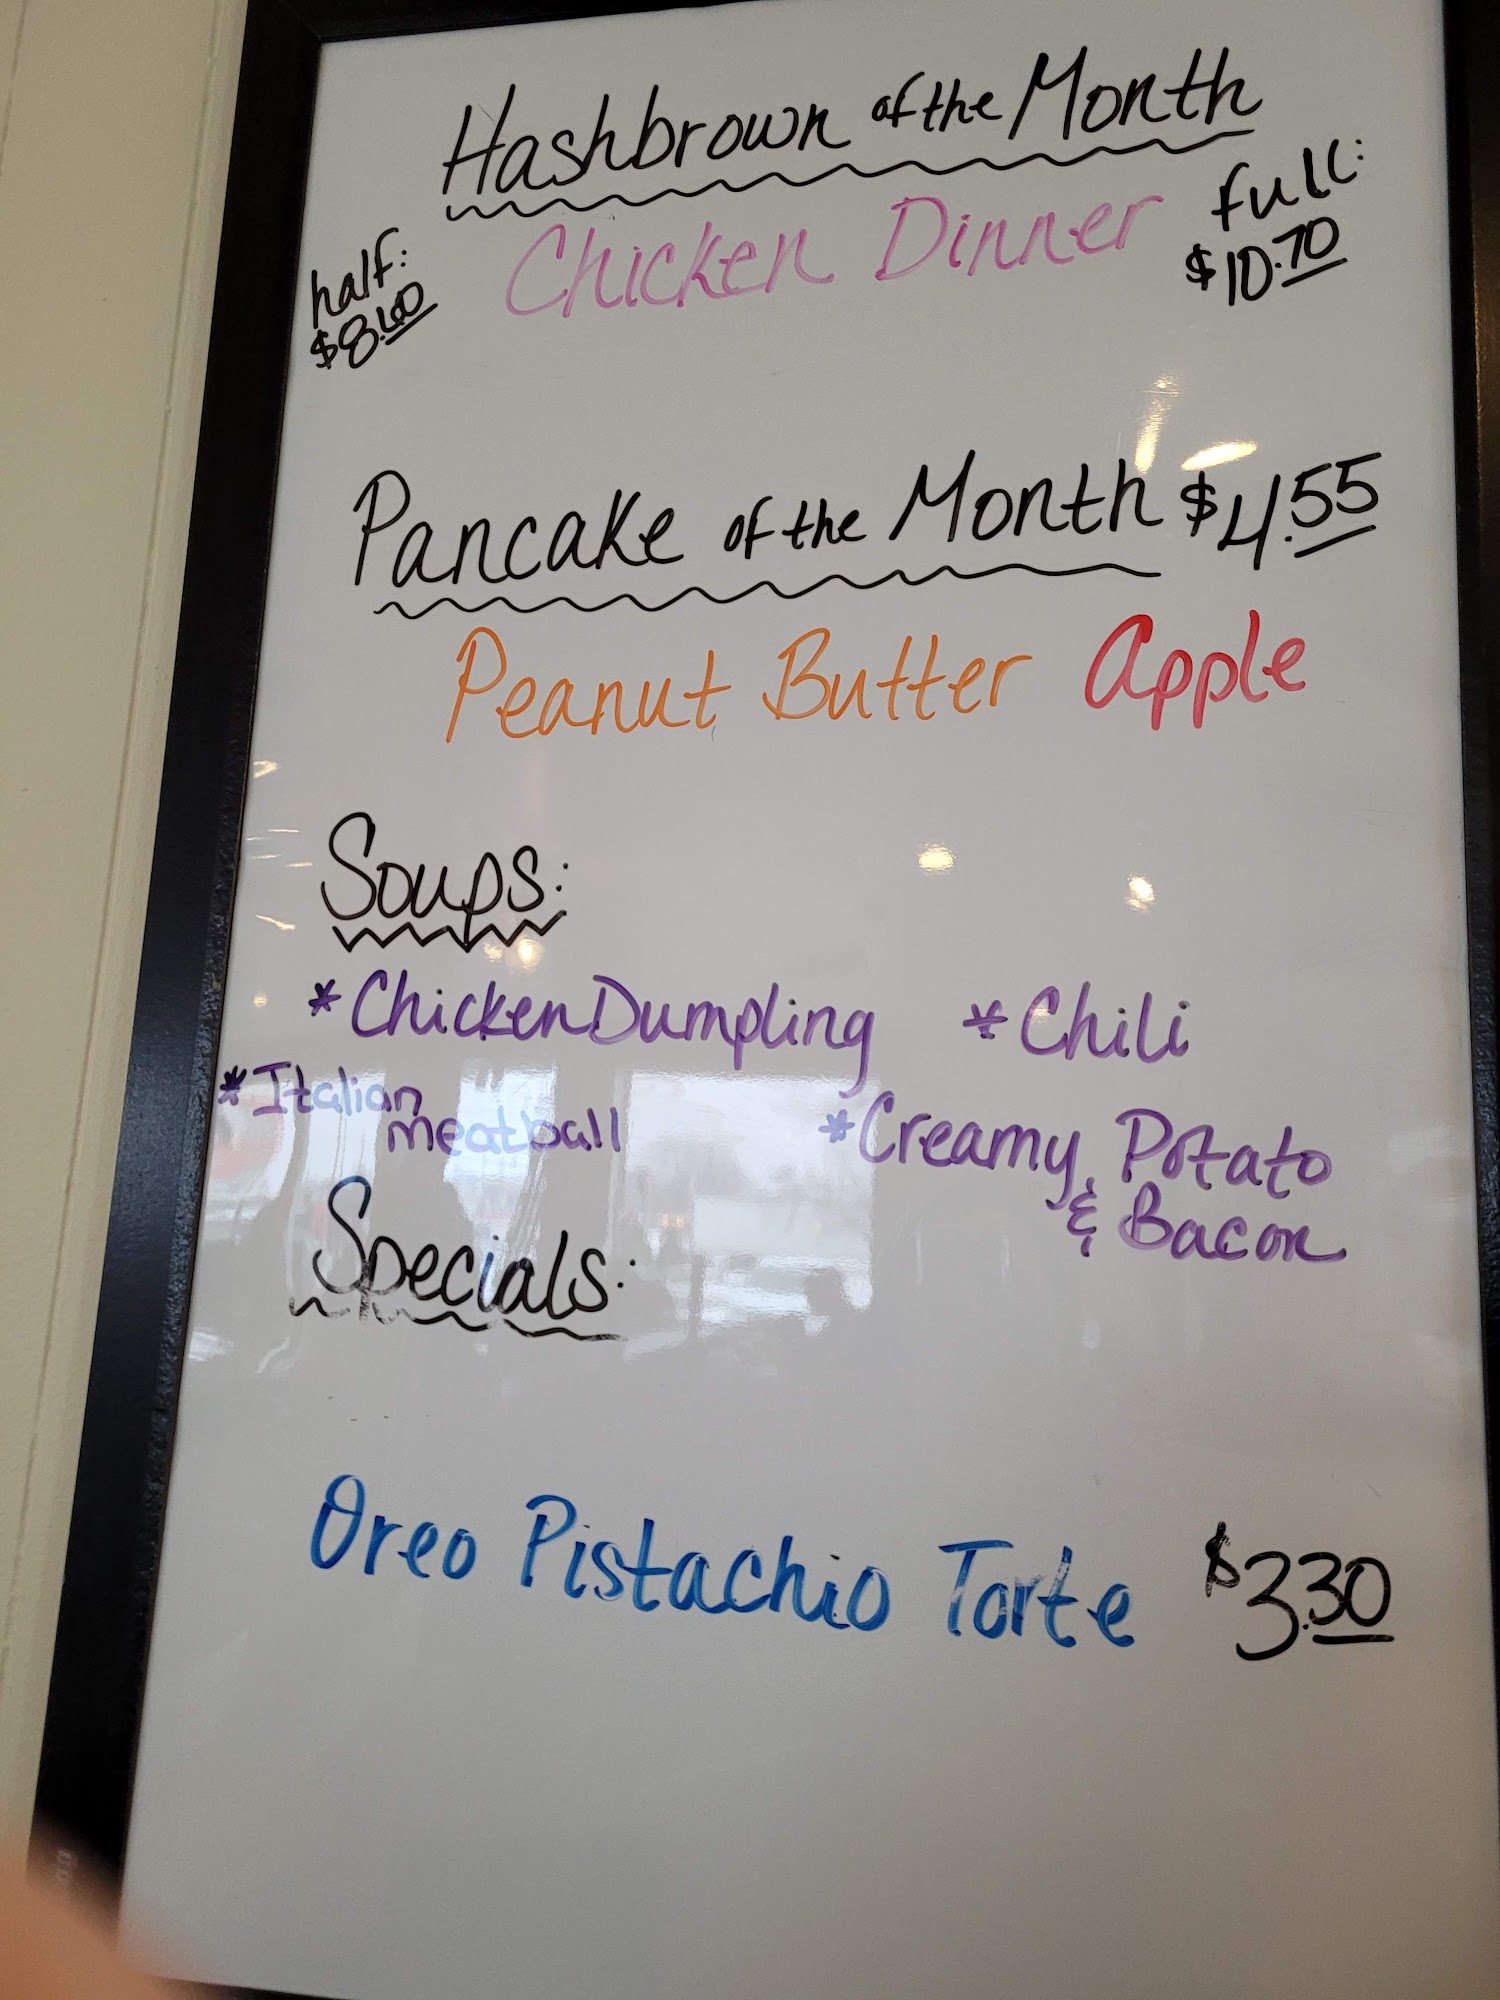 Hashbrown of the Month
half:
$8.60
Chicken Dinner
full:
$10.70
Pancake of the Month $4.55
Peanut Butter Apple
Soups:
*Chicken Dumpling
*Chili
*Italian
meatball
*Creamy Potato
& Bacon
Specials:
Oreo Pistachio Torte $3.30